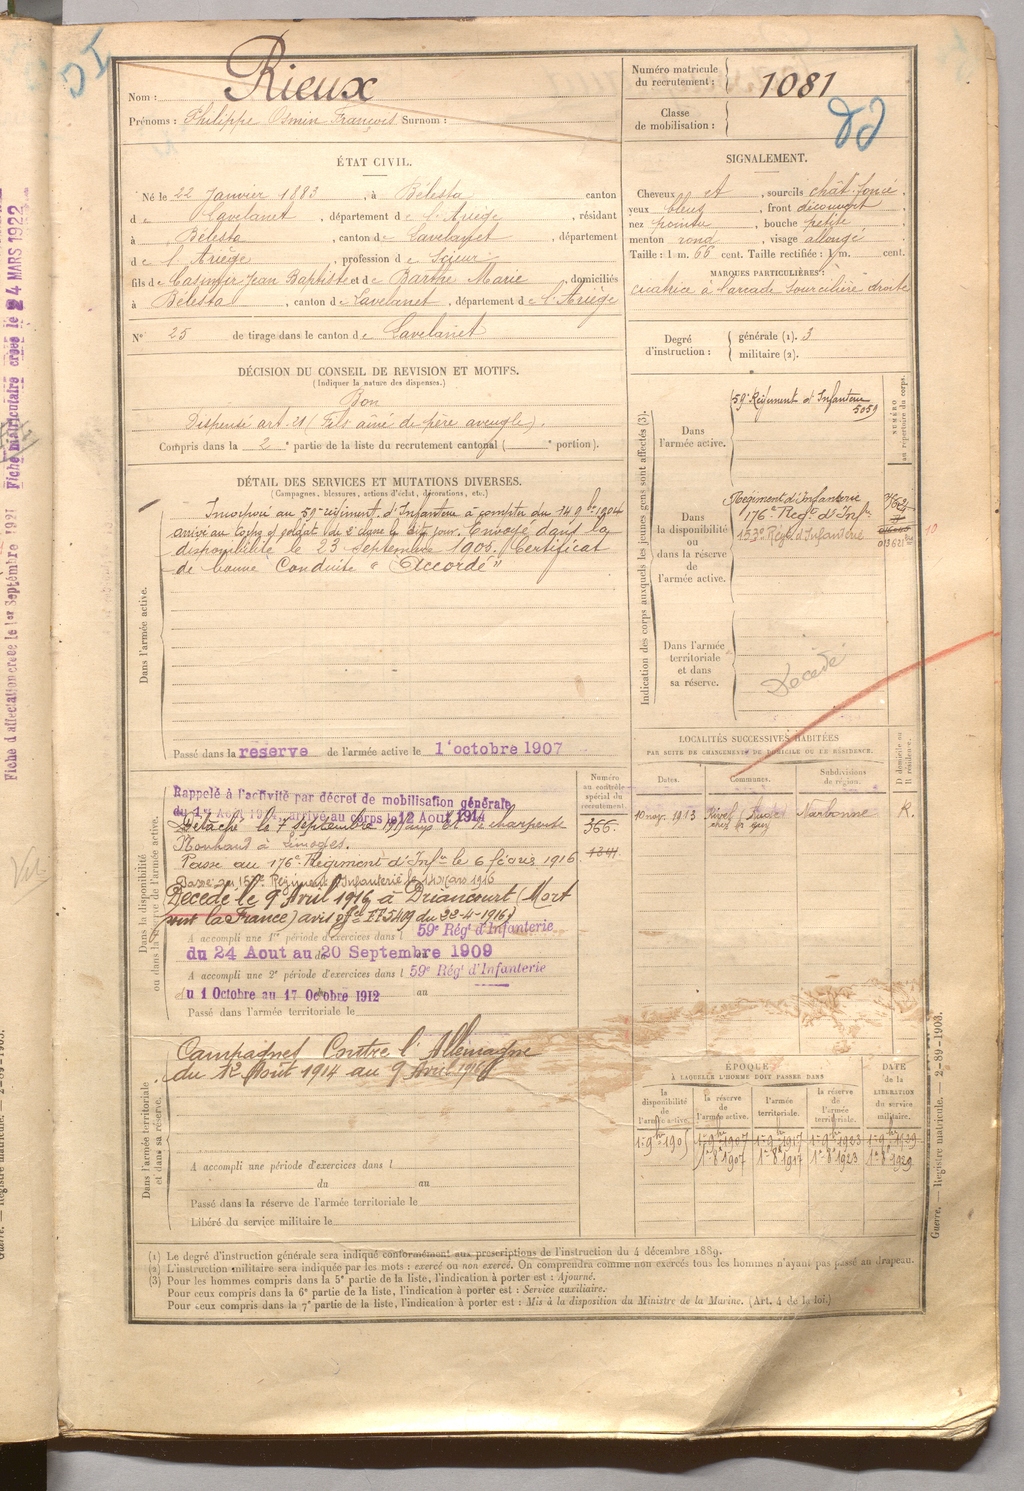 Nom : Rieux
Prénoms : Philippe Osmin François Surnom :
Numéro matricule du recrutement : 1081
Classe de mobilisation :
ÉTAT CIVIL.
Né le 22 Janvier 1883, à Bélesta canton
de Lavelanet, département de l'Ariège, résidant
à Bélesta, canton de Lavelanet, département
de l'Ariège, profession de Scieur
fils de Casimir Jean Baptiste et de Barthe Marie, domiciliés
à Bélesta, canton de Lavelanet, département de l'Ariège
N° 25 de tirage dans le canton de Lavelanet
SIGNALEMENT.
Cheveux et, sourcils chât. foncé,
yeux bleus, front découvert,
nez pointu, bouche petite,
menton rond, visage allongé.
Taille : 1 m. 66 cent. Taille rectifiée : 1 m. cent.
MARQUES PARTICULIÈRES :
cicatrice à l'arcade sourcilière droite
Degré d'instruction : générale (1). 3
militaire (2).
DÉCISION DU CONSEIL DE REVISION ET MOTIFS.
(Indiquer la nature des dispenses.)
Bon
Dispensé art. 21 (Fils aîné de père aveugle).
Compris dans la 2e partie de la liste du recrutement cantonal ( e portion).
DÉTAIL DES SERVICES ET MUTATIONS DIVERSES.
(Campagnes, blessures, actions d'éclat, décorations, etc.)
Dans l'armée active.
Incorporé au 59e régiment d'Infanterie à compter du 14 9bre 1904
arrivé au corps et soldat de 2e classe le dit jour. Envoyé dans la
disponibilité le 23 Septembre 1905. Certificat
de bonne Conduite "Accordé"
Passé dans la réserve de l'armée active le 1er octobre 1907
Indication des corps auxquels les jeunes gens sont affectés (3).
NUMÉRO au répertoire du corps.
Dans l'armée active.
59e Régiment d'Infanterie
5059
Dans la disponibilité ou dans la réserve de l'armée active.
Régiment d'Infanterie
176e Régt d'Infie
153e Régt d'Infanterie
Dans l'armée territoriale et dans sa réserve.
Décédé
LOCALITÉS SUCCESSIVES HABITÉES
PAR SUITE DE CHANGEMENTS DE DOMICILE OU DE RÉSIDENCE.
Dates. Communes. Subdivisions de région. D domicile ou R résidence.
10 nov. 1913 Rivel (Aude) Narbonne R.
Dans la disponibilité ou dans la réserve de l'armée active.
Numéro au contrôle spécial du recrutement.
366.
Rappelé à l'activité par décret de mobilisation générale
du 1er Août 1914, arrivé au corps le 12 Août 1914
Détaché le 7 septembre
Nonhaud à Limoges.
Passé au 176e Régiment d'Infie le 6 février 1916
Passé au 153e Régiment d'Infanterie le 14 Mars 1916
Décédé le 9 Avril 1916 à Driancourt (Mort
pour la France) avis offel FF 5409 du 22-4-1916)
A accompli une 1re période d'exercices dans l 59e Rég' d'Infanterie
du 24 Aout au 20 Septembre 1909
A accompli une 2e période d'exercices dans l 59e Rég' d'Infanterie
du 1 Octobre au 17 Octobre 1912 au
Passé dans l'armée territoriale le
Dans l'armée territoriale et dans sa réserve.
Campagnes Contre l'Allemagne
du 12 Août 1914 au 9 Avril 1916
A accompli une période d'exercices dans l
du au
Passé dans la réserve de l'armée territoriale le
Libéré du service militaire le
ÉPOQUE
À LAQUELLE L'HOMME DOIT PASSER DANS
la disponibilité de l'armée active. la réserve de l'armée active. l'armée territoriale. la réserve de l'armée territoriale. DATE de la LIBÉRATION du service militaire.
1er 9bre 1905 1er 9bre 1907 1er 9bre 1917 1er 9bre 1923 1er 9bre 1929
1er 8bre 1907 1er 8bre 1917 1er 8bre 1923 1er 8bre 1929
(1) Le degré d'instruction générale sera indiqué conformément aux prescriptions de l'instruction du 4 décembre 1889.
(2) L'instruction militaire sera indiquée par les mots : exercé ou non exercé. On comprendra comme non exercés tous les hommes n'ayant pas passé au drapeau.
(3) Pour les hommes compris dans la 5e partie de la liste, l'indication à porter est : Ajourné.
Pour ceux compris dans la 6e partie de la liste, l'indication à porter est : Service auxiliaire.
Pour ceux compris dans la 7e partie de la liste, l'indication à porter est : Mis à la disposition du Ministre de la Marine. (Art. 4 de la loi.)
Guerre. — Registre matricule. — 2-89-1903.
Fiche d'affectation créée le 1er Septembre 1921 Fiche matriculaire créée le 24 MARS 1922